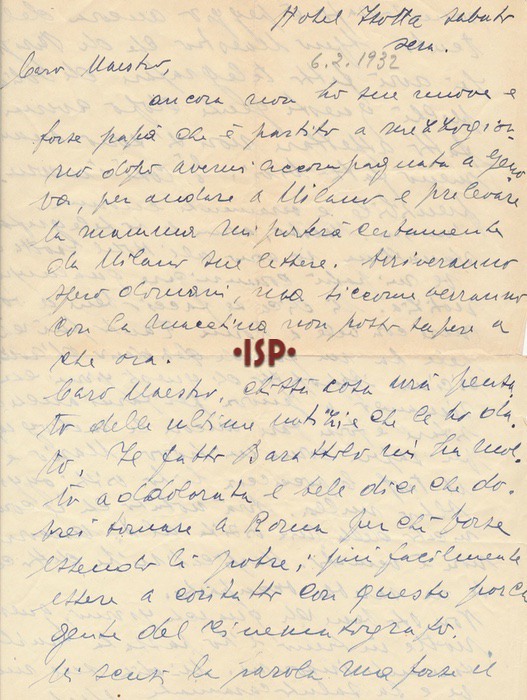 Hotel Isotta sabato
sera.
6.2.1932
Caro Maestro,
ancora non ho sue nuove e
forse papà che è partito a mezzogior
no dopo avermi accompagnata a Geno
va, per andare a Milano e prelevare
la mamma mi porterà certamente
da Milano sue lettere. Arriveranno
spero domani, ma siccome verranno
con la macchina non posso sapere a
che ora.
•ISP•
Caro Maestro, chissà cosa avrà pensa
to delle ultime notizie che le ho da
to, Il fatto Barattolo mi ha mol
to addolorata e Lele dice che do
vrei tornare a Roma perchè forse
essendo lì potrei più facilmente
essere a contatto con questa porca
gente del cinematografo.
Mi scusi la parola ma forse il